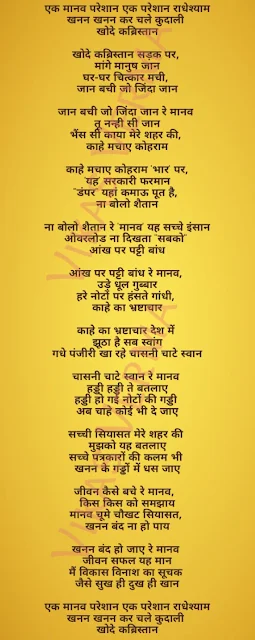 एक मानव परेशान एक परेशान राधेश्याम
खनन खनन कर चले कुदाली
खोदे कब्रिस्तान
खोदे कब्रिस्तान सड़क पर,
मांगे मानुष जान
घर-घर चित्कार मची,
जान बची जो जिंदा जान
जान बची जो जिंदा जान रे मानव
तू नन्ही सी जान
भैंस सी काया मेरे शहर की,
काहे मचाए कोहराम
काहे मचाए कोहराम 'भार' पर,
'यह' सरकारी फरमान
"डंपर" यहां कमाऊ पूत है,
ना बोलो शैतान
ना बोलो शैतान रे 'मानव' यह सच्चे इंसान
ओवरलोड ना दिखता "सबको"
आंख पर पट्टी बांध
आंख पर पट्टी बांध रे मानव,
उड़े धूल गुब्बार
हरे नोटों पर हंसते गांधी,
काहे का भ्रष्टाचार
काहे का भ्रष्टाचार देश में
झूठा है सब स्वांग
गधे पंजीरी खा रहे चासनी चाटे स्वान
चासनी चाटे स्वान रे मानव
हड्डी हड्डी ते बतलाए
हड्डी हो गई नोटों की गड्डी
अब चाहे कोई भी दे जाए
सच्ची सियासत मेरे शहर की
मुझको यह बतलाए
सच्चे पत्रकारों की कलम भी
खनन के गड्ढों में धस जाए
जीवन कैसे बचे रे मानव,
किस किस को समझाय
मानव चूमे चौखट सियासत,
खनन बंद ना हो पाय
खनन बंद हो जाए रे मानव
जीवन सफल यह मान
मैं विकास विनाश का सूचक
जैसे सुख ही दुख ही खान
एक मानव परेशान एक परेशान राधेश्याम
खनन खनन कर चले कुदाली
खोदे कब्रिस्तान